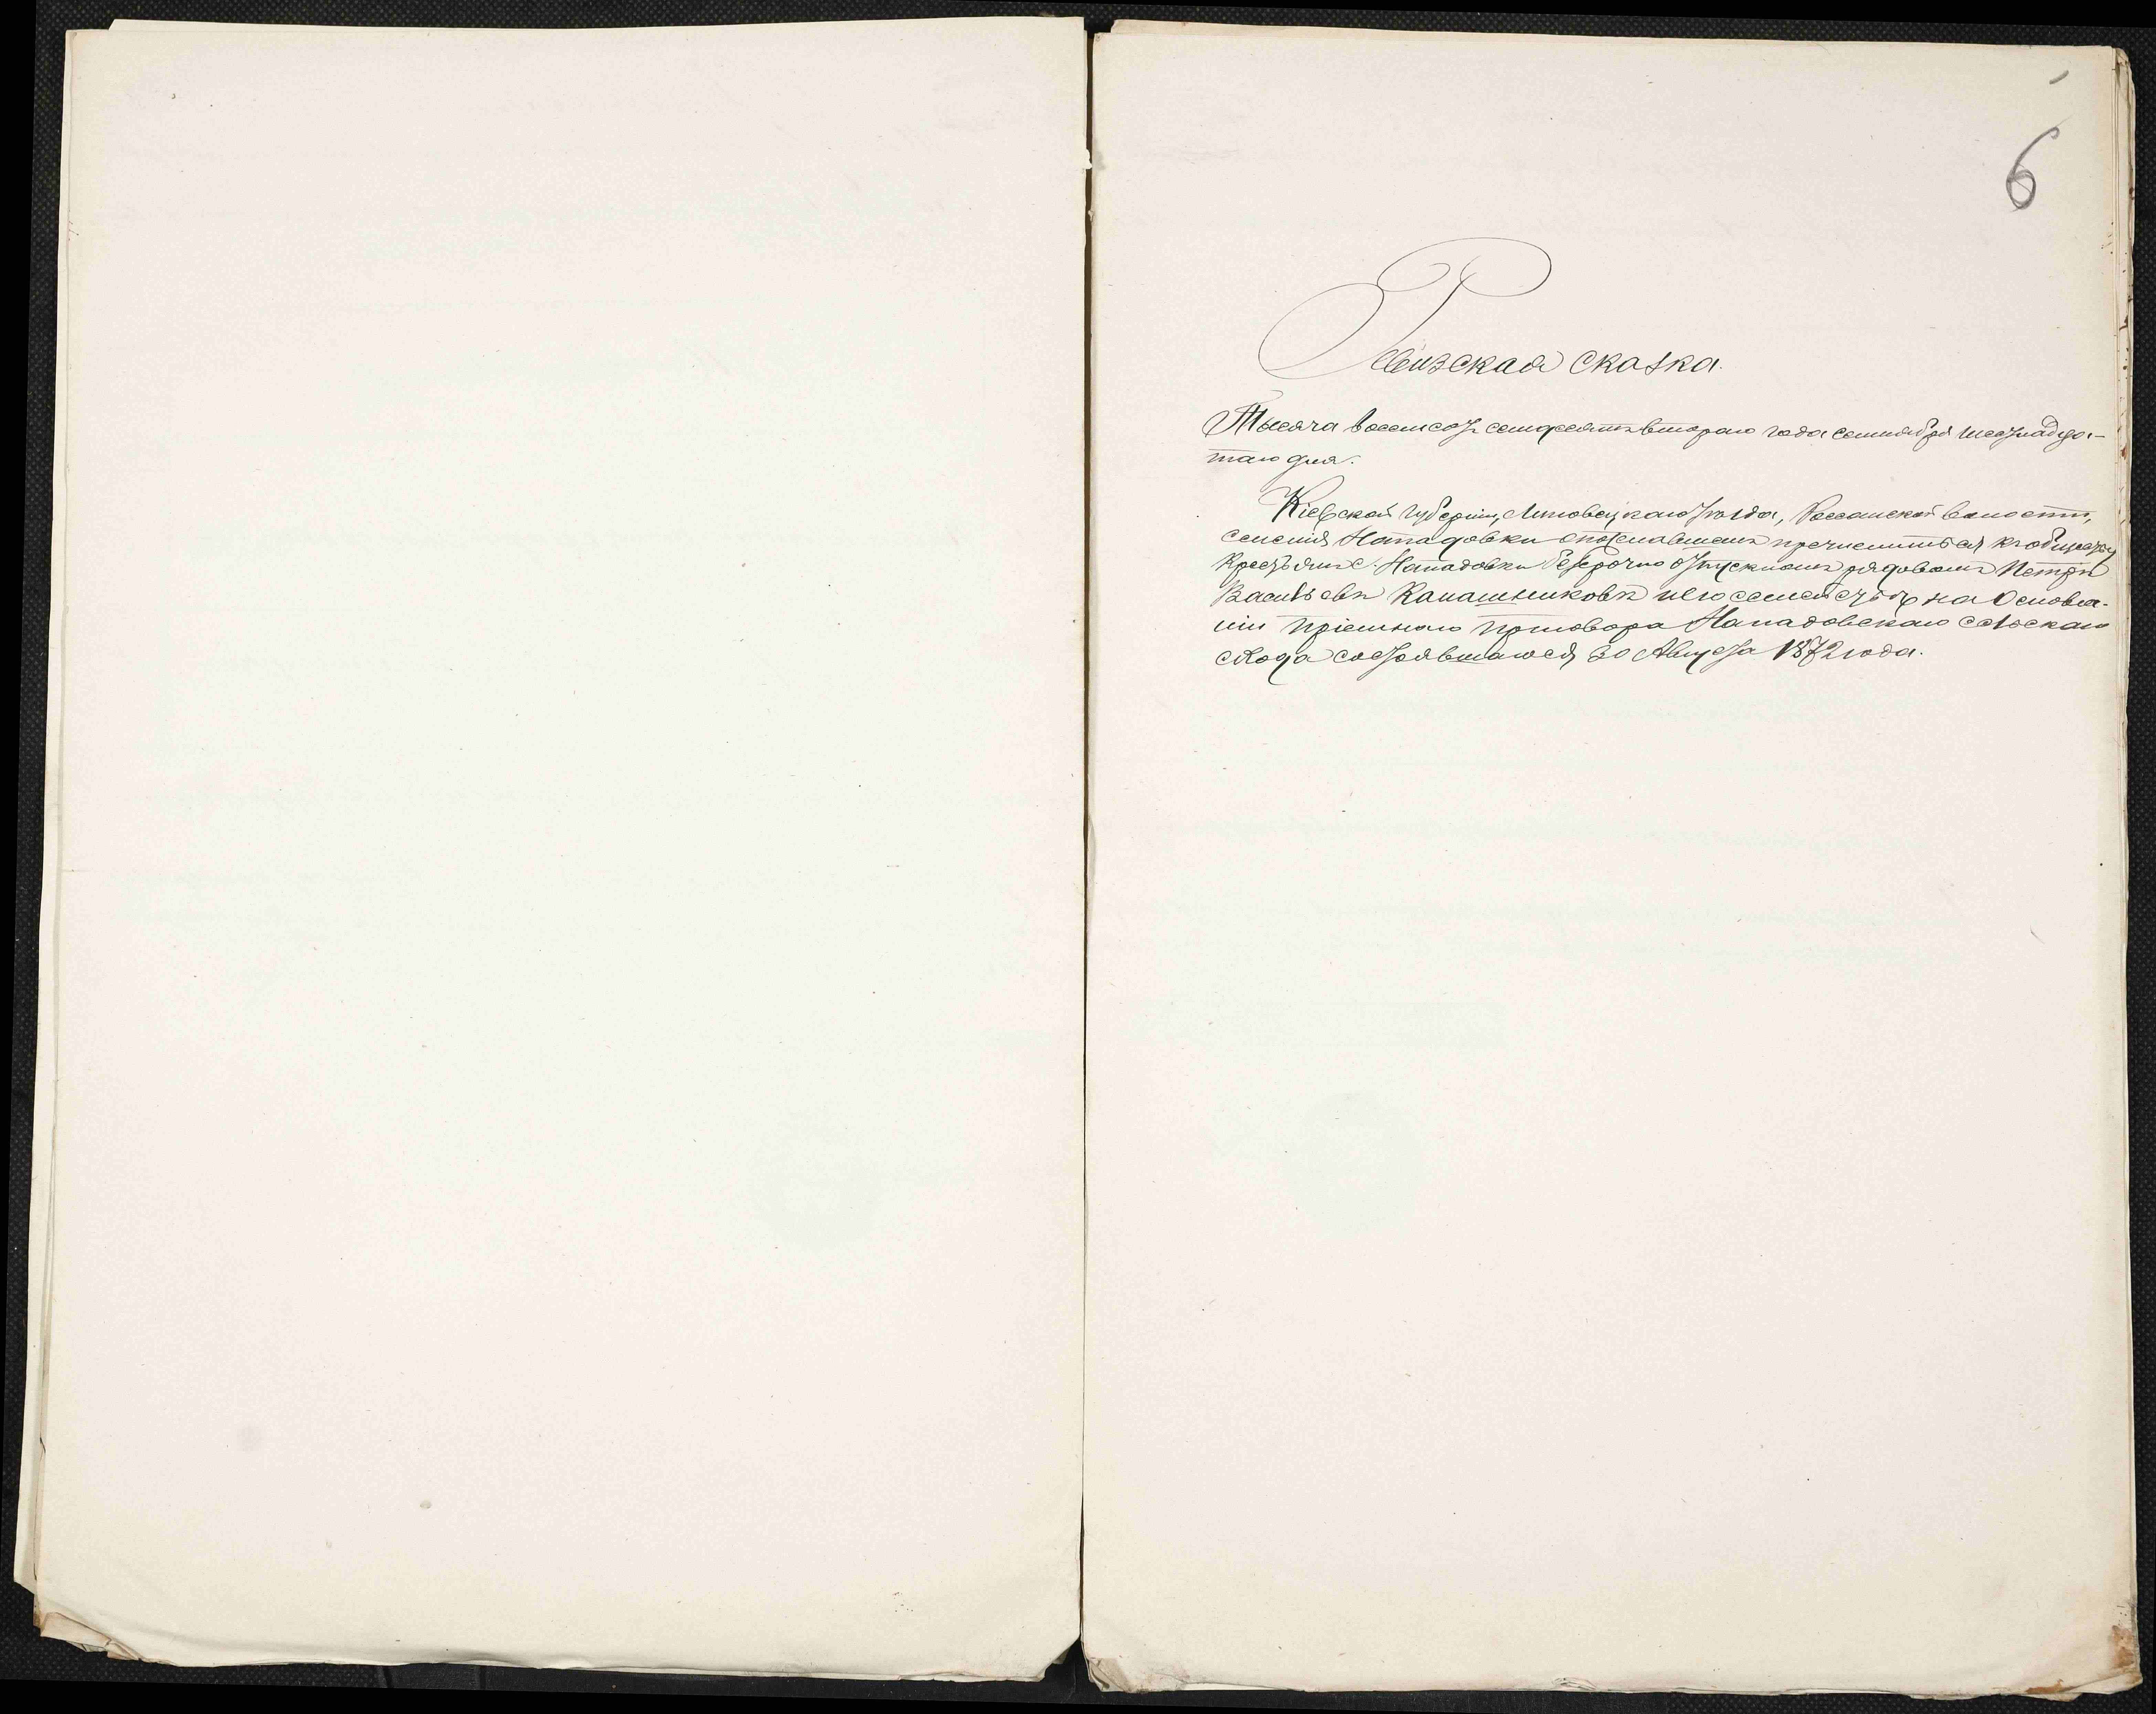 6
Ревизская сказка.
Тысяча восемсот семдесять втораго года сентября шестнадца-
таго дня.
Кіевской губерніи, Липовецкаго уезда, Россошской волости,
селенія Нападовки о пожелавшемъ причислиться къ обществу
крестьянъ с. Нападовки безсрочно отпускномъ рядовомъ Петрѣ
Васильевѣ Калашниковѣ и его семействѣ на основа-
ніи пріемнаго приговора Нападовскаго сельскаго
схода состоявшагося 30 Августа 1872 года.